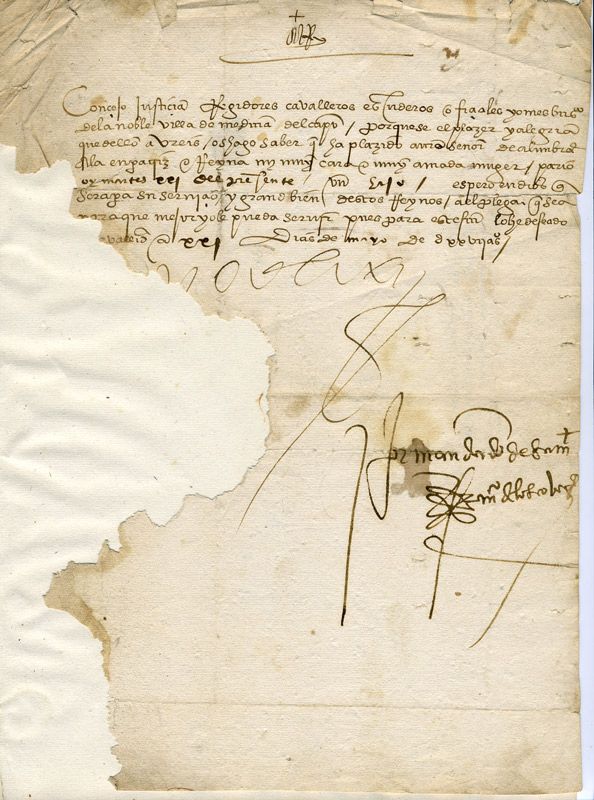 El Rey
Concejo Justicia Regidores cavalleros escuderos oficiales y omes buenos
de la noble villa de medina del campo / porque se el plazer y alegria
que dello avreis / os hago saber que ha plazido a nuestro señor de alumbrar
en paz a la Reyna mi muy cara e muy amada muger / pario
oy martes xxi del presente un hijo / espero en dios que
sera para su servicio y grand bien destos Reynos / a el plega que sea
para que mejor yo le pueda servir pues para este fin lo he deseado
xxi dias de mayo de dxxvij años /
Yo el Rey
por mandado de su mt